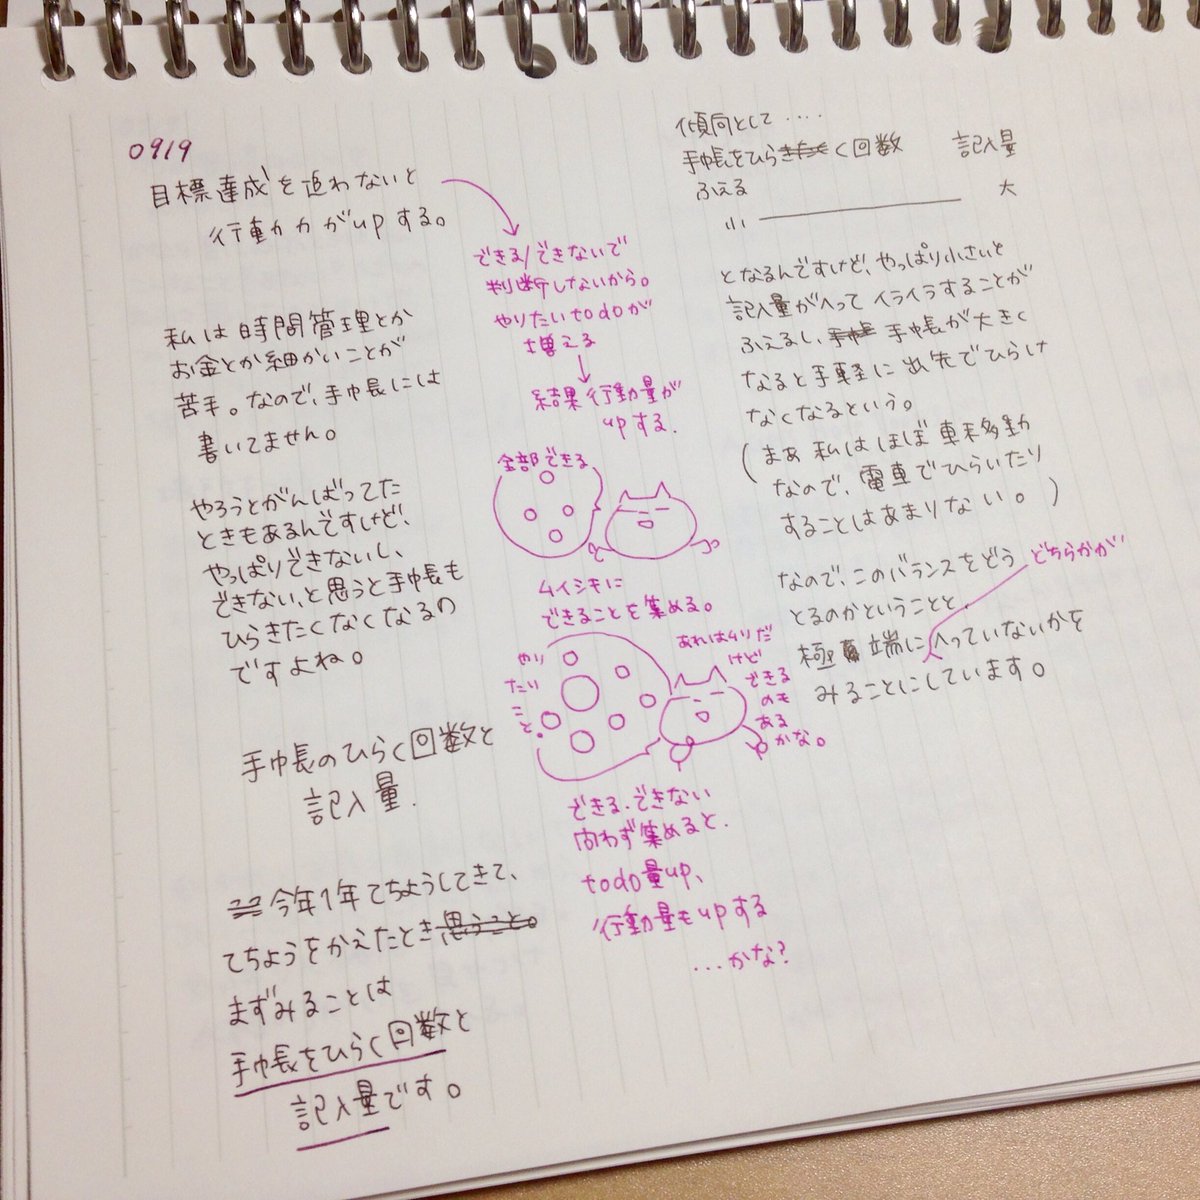 0919
目標達成を追わないと
行動力がupする。
私は時間管理とか
お金とか細かいことが
苦手。なので、手帳には
書いてません。
やろうとがんばってた
ときもあるんですけど、
やっぱりできないし、
できない、と思うと手帳も
ひらきたくなくなるの
ですよね。
手帳のひらく回数と
記入量.
今年1年てちょうしてきて、
てちょうをかえたとき思うこと。
まずみることは
手帳をひらく回数と
記入量です。
できる/できないで
判断しないから。
やりたいtodoが
増える
結果行動量が
upする.
全部できる
ムイシキに
できることを集める。
やり
たい
こと。
あれはムリだ
けど
できる
のも
ある
かな。
できる.できない
問わず集めると.
todo量up、
行動量もupする
...かな?
傾向として....
手帳をひらく回数 記入量
ふえる 大
小
となるんですけど、やっぱり小さいと
記入量がへってイライラすることが
ふえるし、手帳 手帳が大きく
なると手軽に出先でひらけ
なくなるという。
(まあ私はほぼ車移動
なので、電車でひらいたり
することはあまりない。)
なので、このバランスをどう
どちらかが
とるのかということと、
極端にへっていないかを
みることにしています。